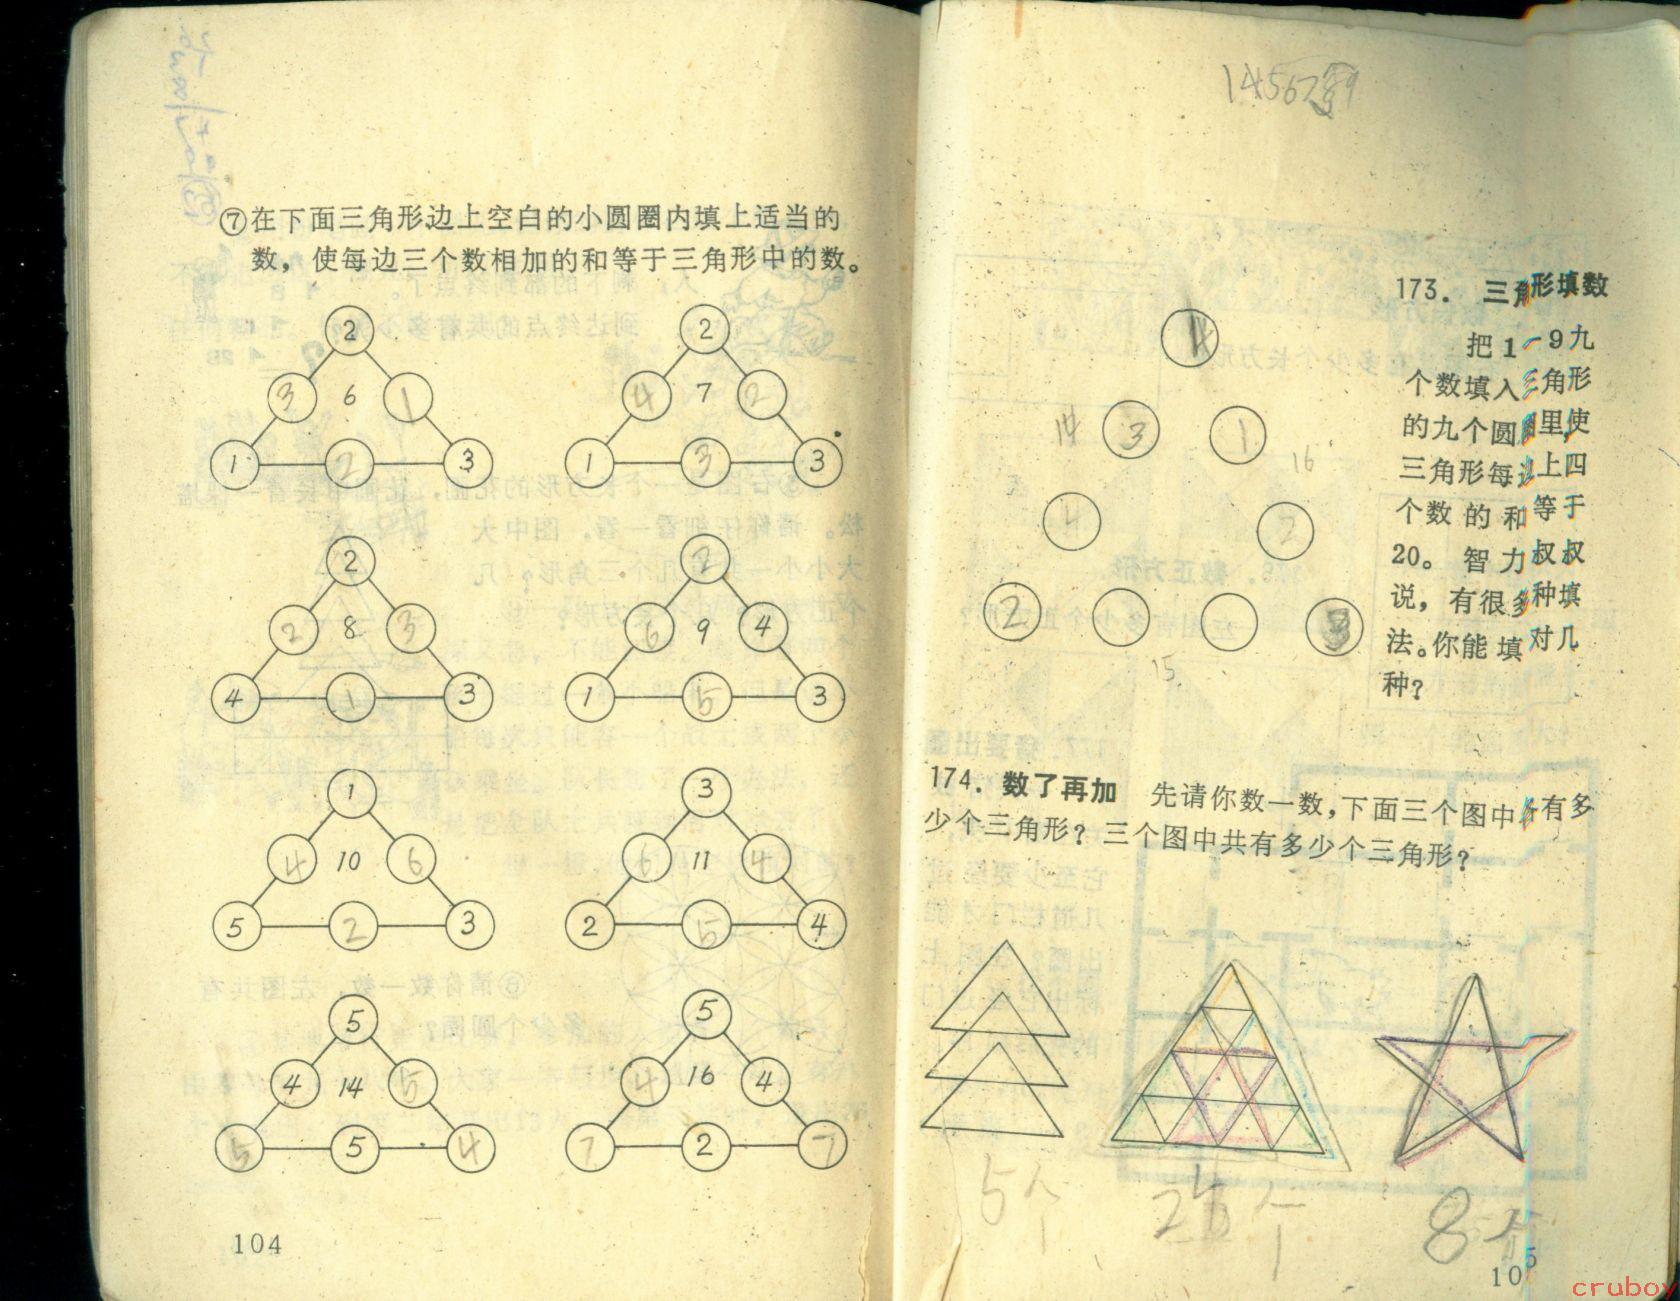 ⑦在下面三角形边上空白的小圆圈内填上适当的
数，使每边三个数相加的和等于三角形中的数。
2
3 6 1
1 2 3
2
4 7 2
1 3 3
2
2 8 3
4 1 3
2
6 9 4
1 5 3
1
4 10 6
5 2 3
3
6 11 4
2 5 4
5
4 14 5
5 5 4
5
4 16 4
7 2 7
104
173. 三角形填数
把1—9九
个数填入三角形
的九个圆圈里,使
三角形每边上四
个数的和等于
20。智力叔叔
说，有很多种填
法。你能填对几
种？
14 3 1
16
4 2
2
15
174. 数了再加 先请你数一数,下面三个图中各有多
少个三角形？三个图中共有多少个三角形？
5个
8个
105
cruboy